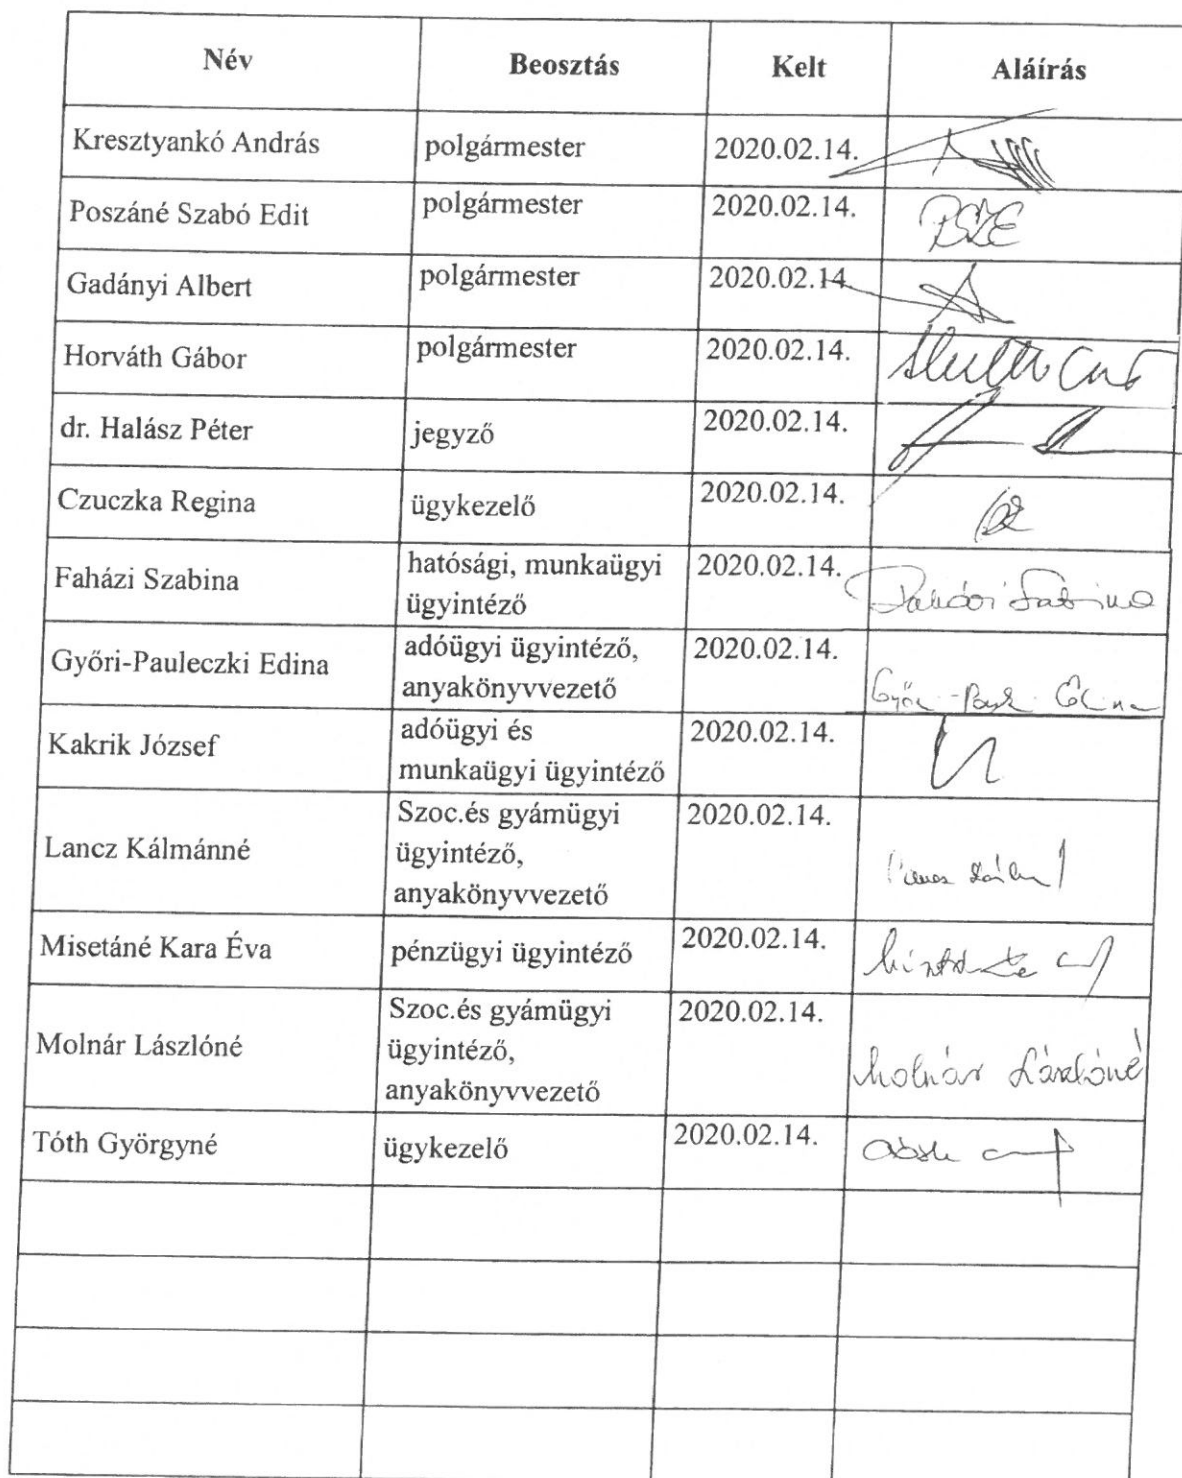 Név Beosztás Kelt Aláírás
Kresztyankó András polgármester 2020.02.14.
Poszáné Szabó Edit polgármester 2020.02.14. PSZE
Gadányi Albert polgármester 2020.02.14
Horváth Gábor polgármester 2020.02.14.
dr. Halász Péter jegyző 2020.02.14.
Czuczka Regina ügykezelő 2020.02.14.
Faházi Szabina hatósági, munkaügyi 2020.02.14.
ügyintéző
Győri-Pauleczki Edina adóügyi ügyintéző, 2020.02.14.
anyakönyvvezető
Kakrik József adóügyi és 2020.02.14.
munkaügyi ügyintéző
Lancz Kálmánné Szoc.és gyámügyi 2020.02.14.
ügyintéző,
anyakönyvvezető
Misetáné Kara Éva pénzügyi ügyintéző 2020.02.14.
Molnár Lászlóné Szoc.és gyámügyi 2020.02.14.
ügyintéző,
anyakönyvvezető Molnár Lászlóné
Tóth Györgyné ügykezelő 2020.02.14.